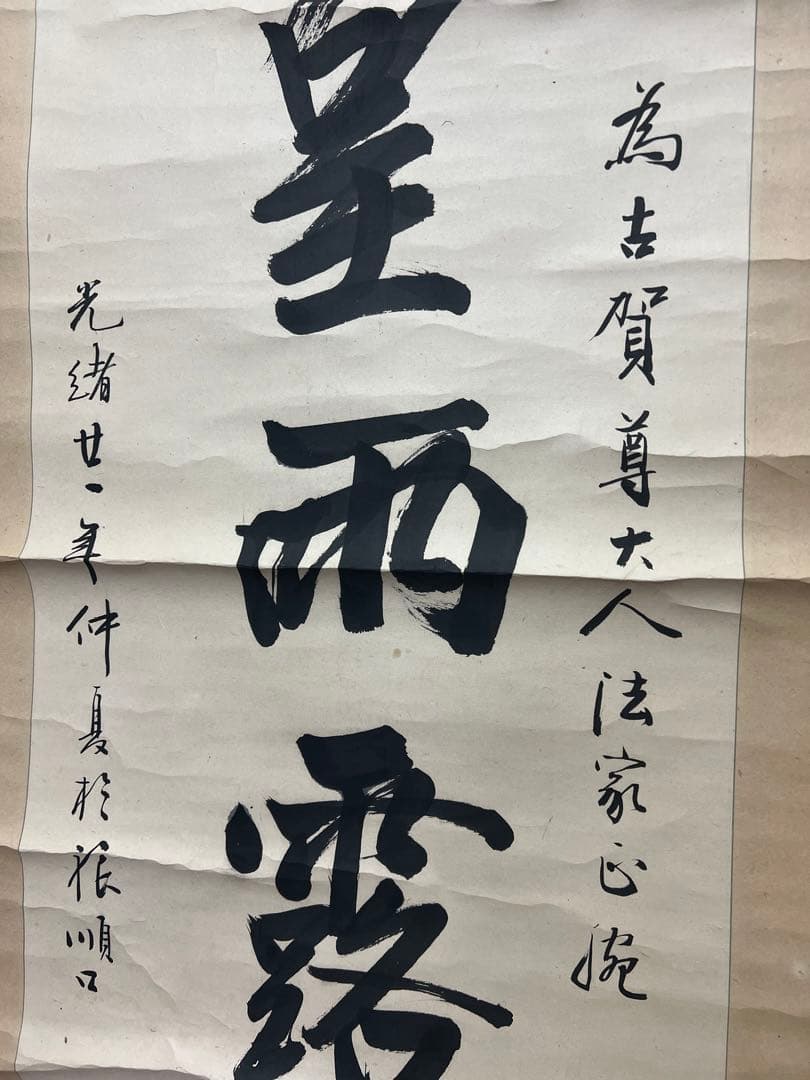 為古賀尊大人法家正腕
呈雨露
光緒廿一年仲夏於旅順口